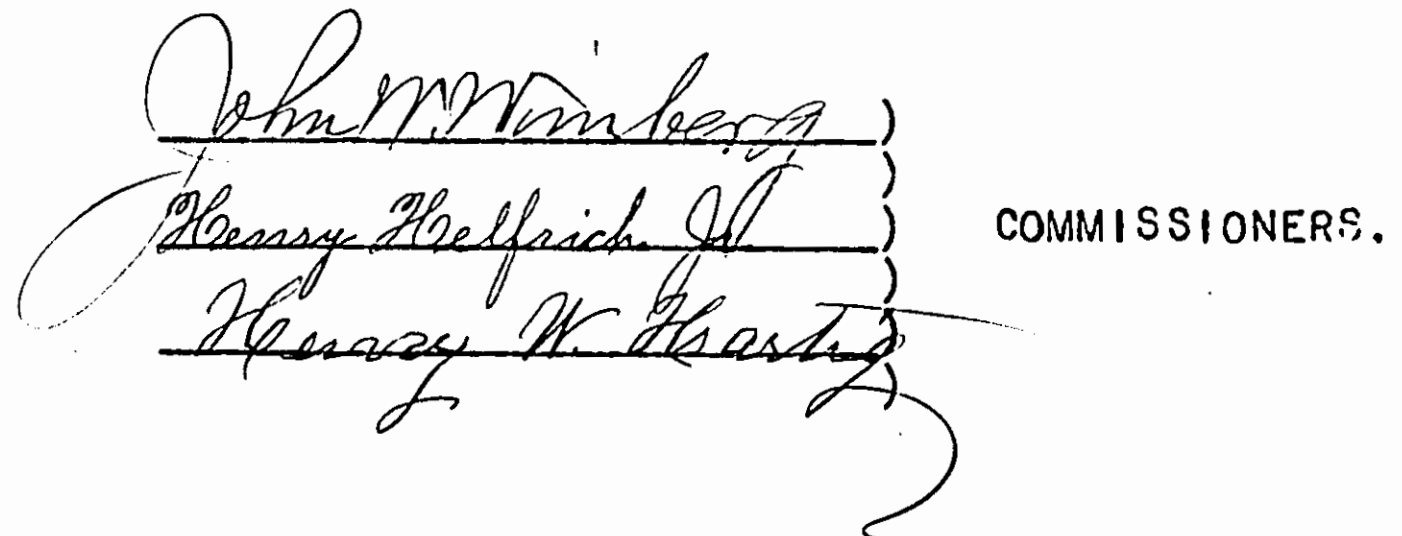 John W. Wimberg )
)
Henry Helfrich Jr. ) COMMISSIONERS.
)
Henry W. Hartig )
)